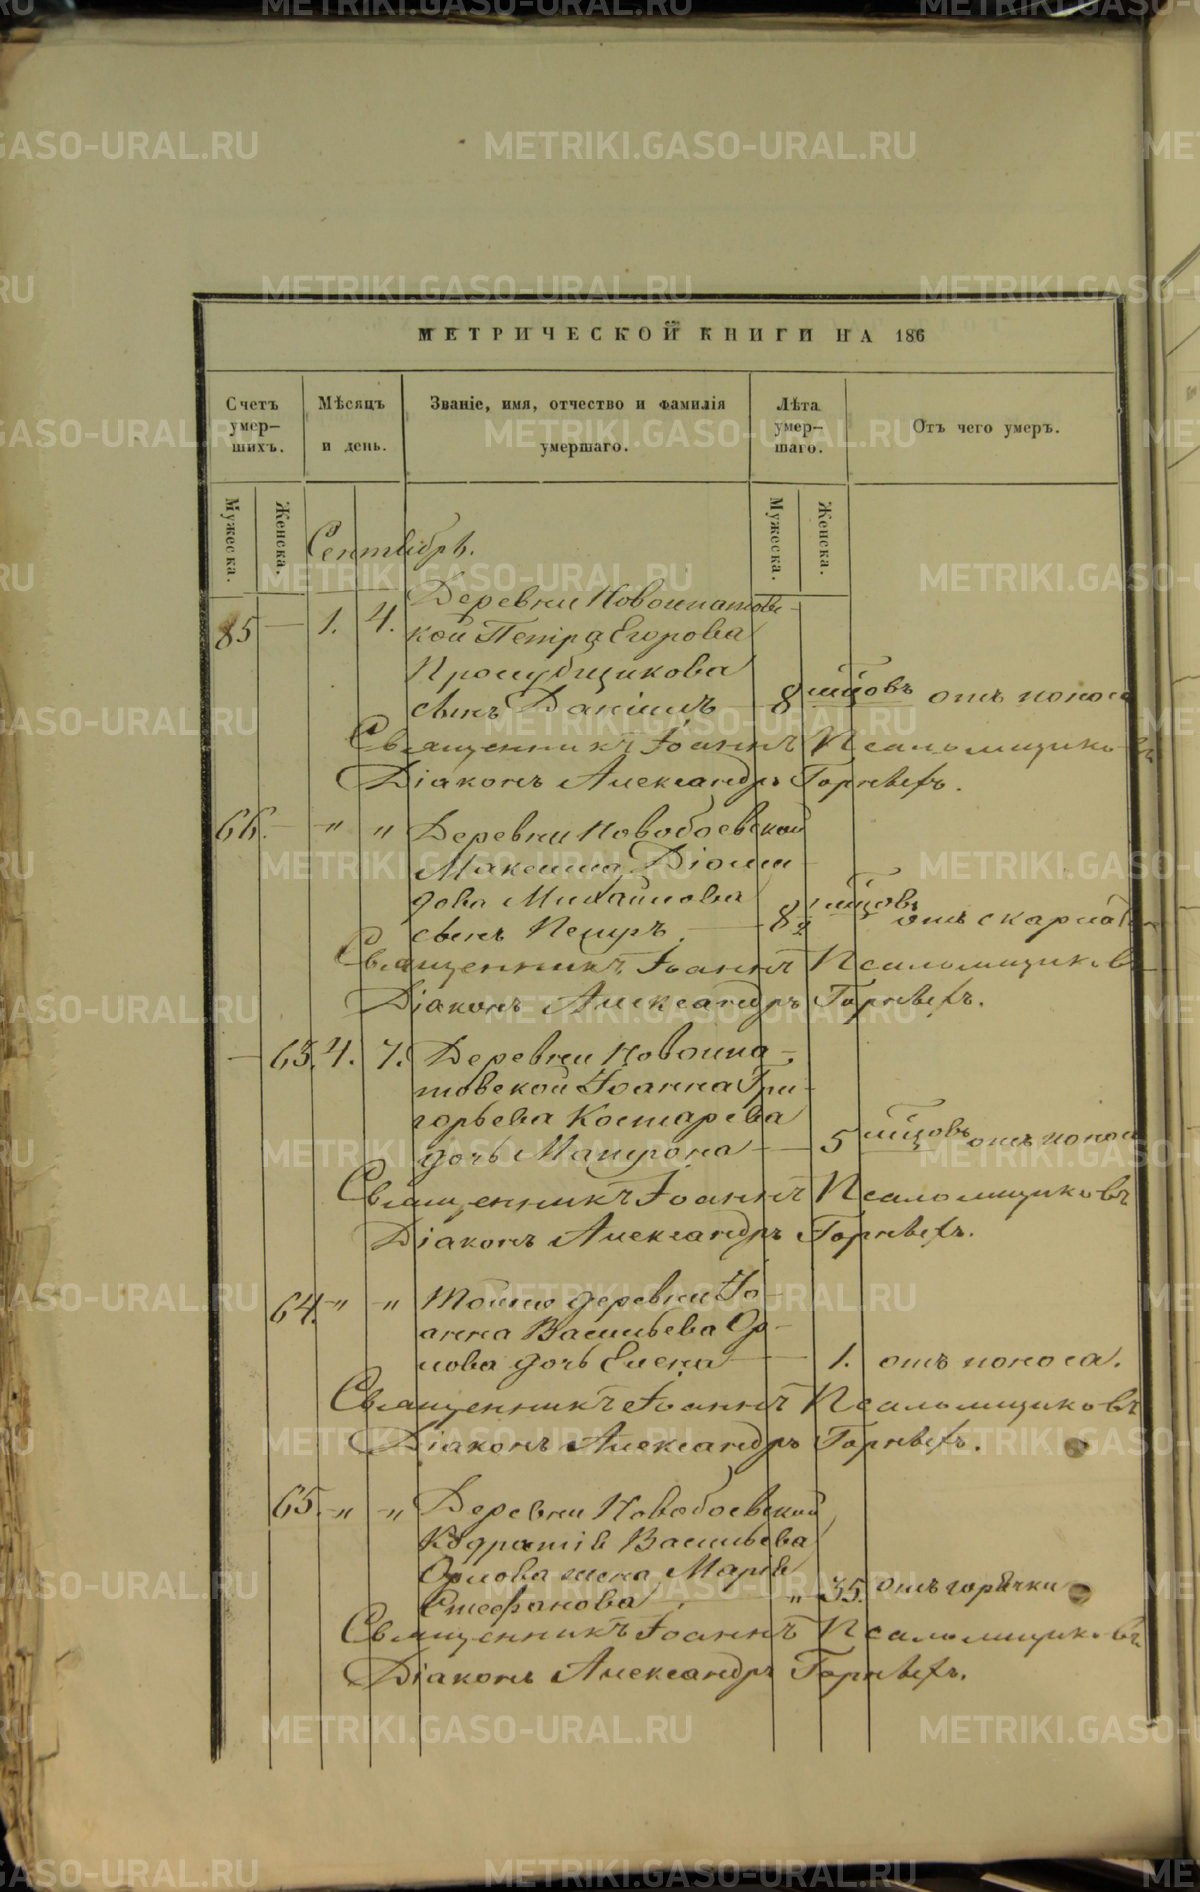 МЕТРИЧЕСКОЙ КНИГИ НА 186
Счетъ умер–шихъ.
Мѣсяцъ и день.
Званіе, имя, отчество и фамилія умершаго.
Лѣта умер–шаго.
Отъ чего умеръ.
Мужеска.
Женска.
Мужеска.
Женска.
Сентябрь.
Деревни Новоипатовс-
85 — 1. 4. кой Петра Егорова
сынъ Даніилъ — 8 мцовъ отъ поноса
Священникъ Іоаннъ Псаломщиковъ
Діаконъ Александръ Горныхъ.
66. — " " Деревни Новобоевской
Максима Діоми-
дова Михайлова
сынъ Петръ. — 8½ мцовъ отъ
Священникъ Іоаннъ Псаломщиковъ
Діаконъ Александръ Горныхъ.
— 63. 4. 7. Деревни Новоипа-
товской Іоанна Гри-
горьева Костарева
дочь Матрона — 5 мцовъ отъ поноса
Священникъ Іоаннъ Псаломщиковъ
Діаконъ Александръ Горныхъ.
64. " " Тойже деревни Іо-
анна Васильева Ор-
лова дочь Елена — 1. отъ поноса.
Священникъ Іоаннъ Псаломщиковъ
Діаконъ Александръ Горныхъ.
65. " " Деревни Новобоевской
Кодратія Васильева
Орлова жена Марія
Стефанова. " 35. отъ горячки
Священникъ Іоаннъ Псаломщиковъ
Діаконъ Александръ Горныхъ.
METRIKI.GASO-URAL.RU